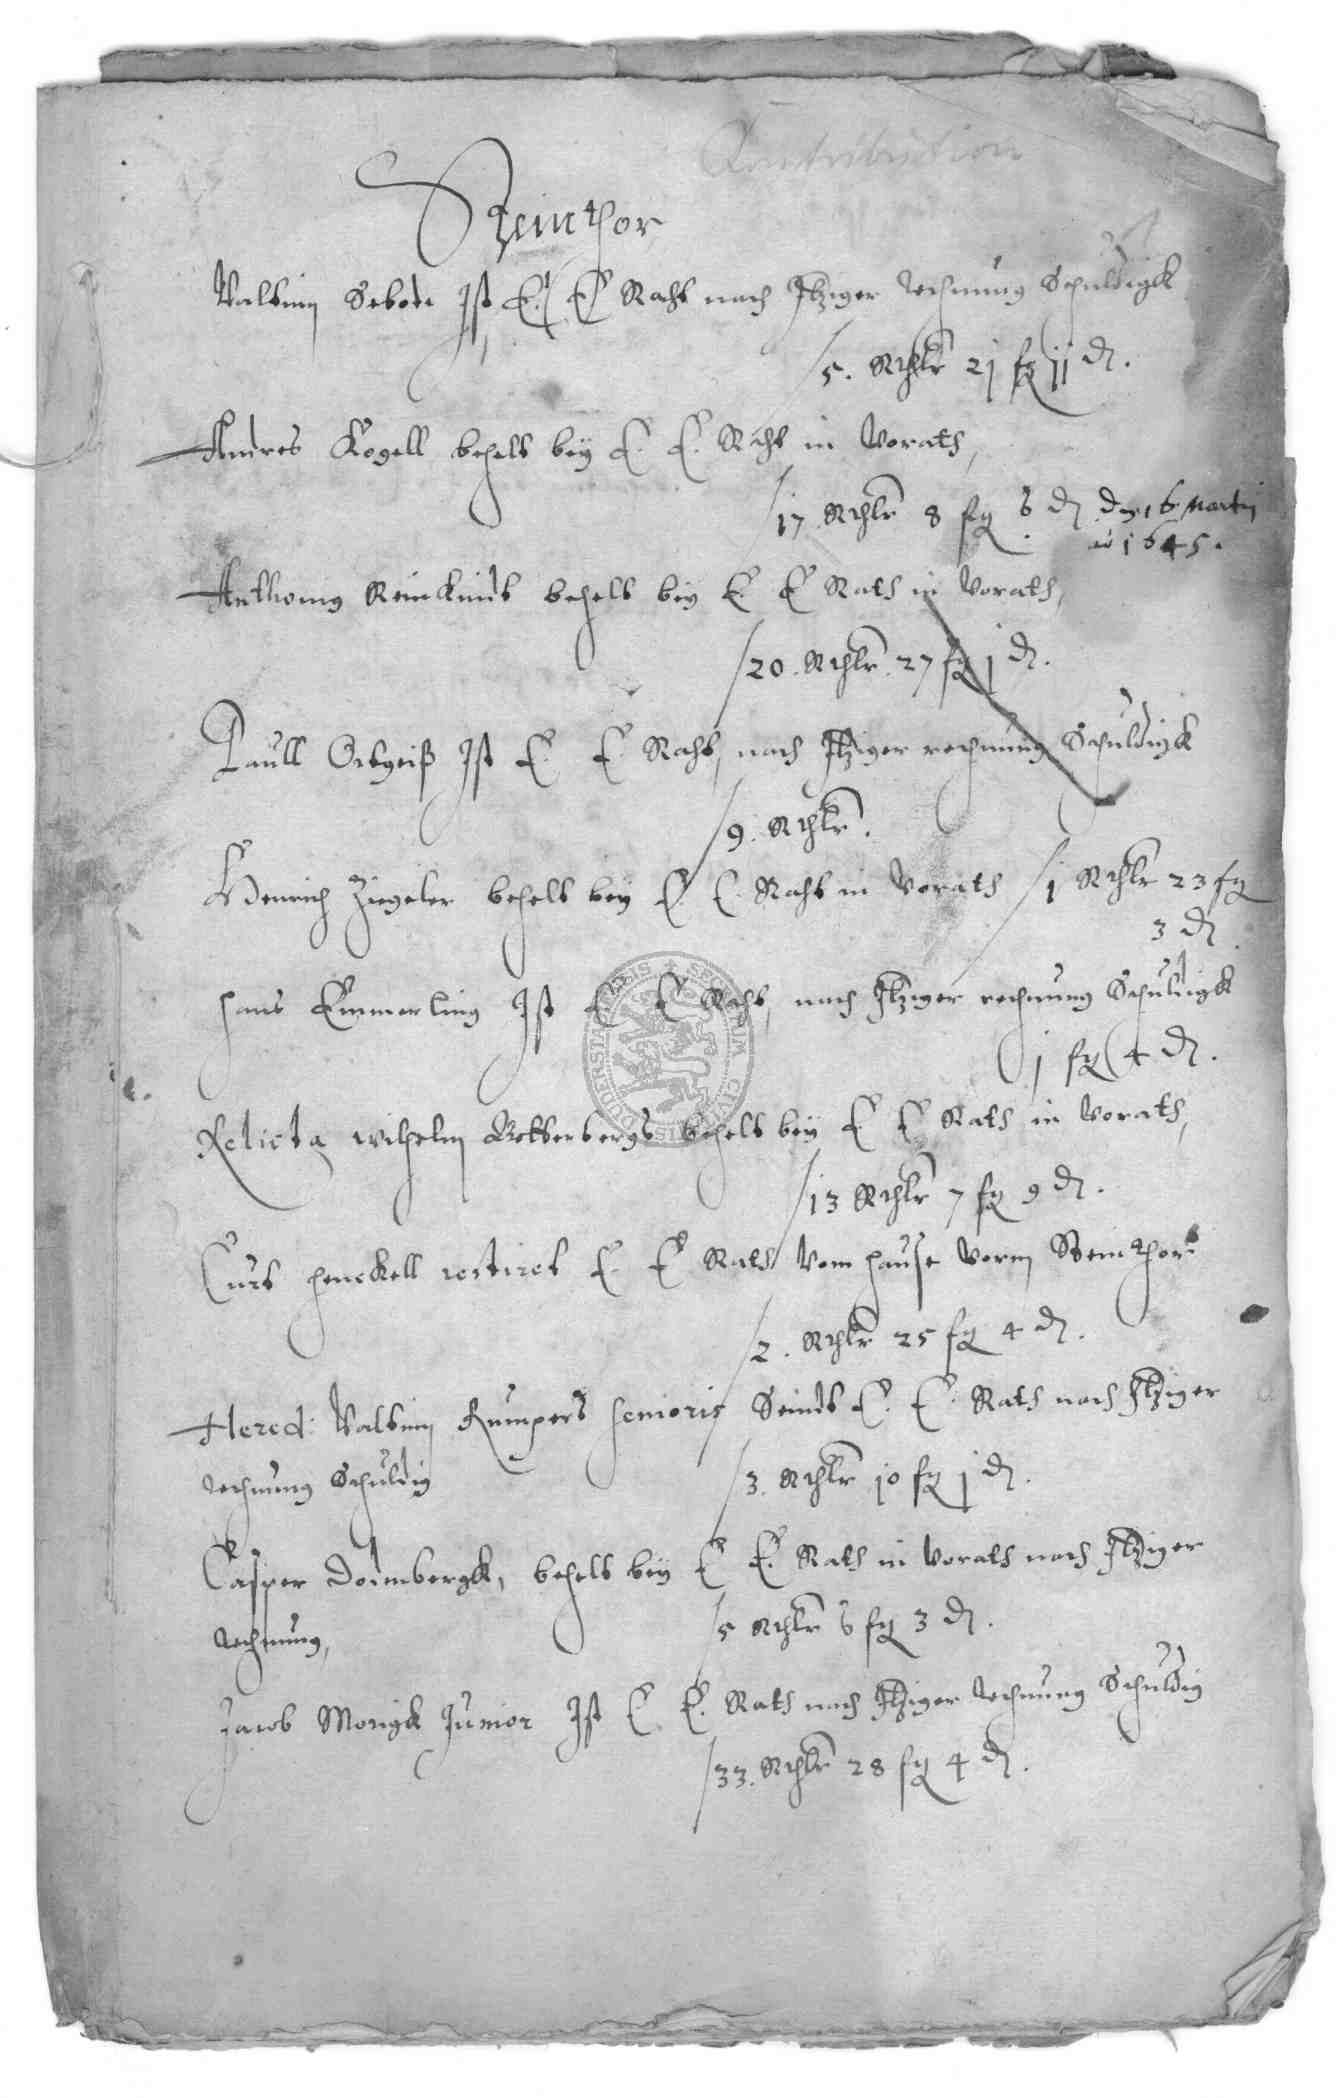 Contribution
Steinthor
Valtinn Sebode Ist E. E Raht nach Itziger rechnung Schuldigk
5. Rthlr 2j fg jj d.
Andres Kogell behelt bey E. E. Raht in Vorath,
17 Rthlr 8 fg 6 d den 16 Martij
ao 1645.
Anthonig Reinckindt behelt bey E. E Rath in Vorath,
20. Rthlr. 27 fg j d.
Paull Ortgeiß Ist E. E. Raht, nach Itziger rechnung Schuldigk
9. Rthlr.
Henrich Ziegeler behelt bey E E. Raht in Vorath 1 Rthlr 23 fg
3 d
Hans Emmerling Ist E E Raht, nach Itziger rechnung Schuldigk
j fg 4 d.
Relicta Wilhelm behelt bey E E Rath in Vorath,
13 Rthlr 7 fg 9 d.
Curt Henckell restiret E. E Rath Vom Hause Vorm Steinthor
2. Rthlr 25 fg 4 d.
Hered: Valtinn Rumpert Senioris Seindt E. E. Rath nach Itziger
rechnung Schuldig
3. Rthlr jo fg j d.
Casper Dornbergk, behelt bey E E. Rath in Vorath nach Itziger
rechnung,
5 Rthlr 6 fg 3 d.
Jacob Morigk Junior Ist E E. Rath nach Itziger rechnung Schuldig
33. Rthlr 28 fg 4 d.